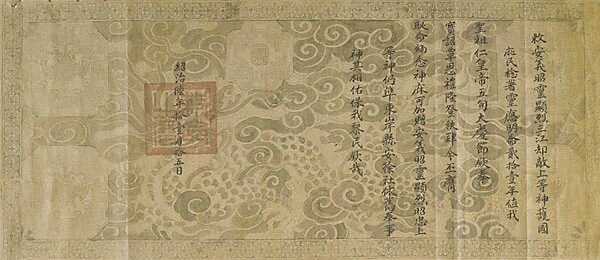 敕安義昭靈顯烈三江却敵上等神護國
庇民稔著靈應明命貳拾壹年值我
聖祖仁皇帝五旬大慶節欽奉
寶詔覃恩禮隆登秩肆今丕膺
耿命緬念神庥可加贈安義昭靈顯烈昭忠上
等神仍準東岸縣安徐社依舊奉事
神其相佑保我黎民欽哉
紹治陸年拾壹月拾五日